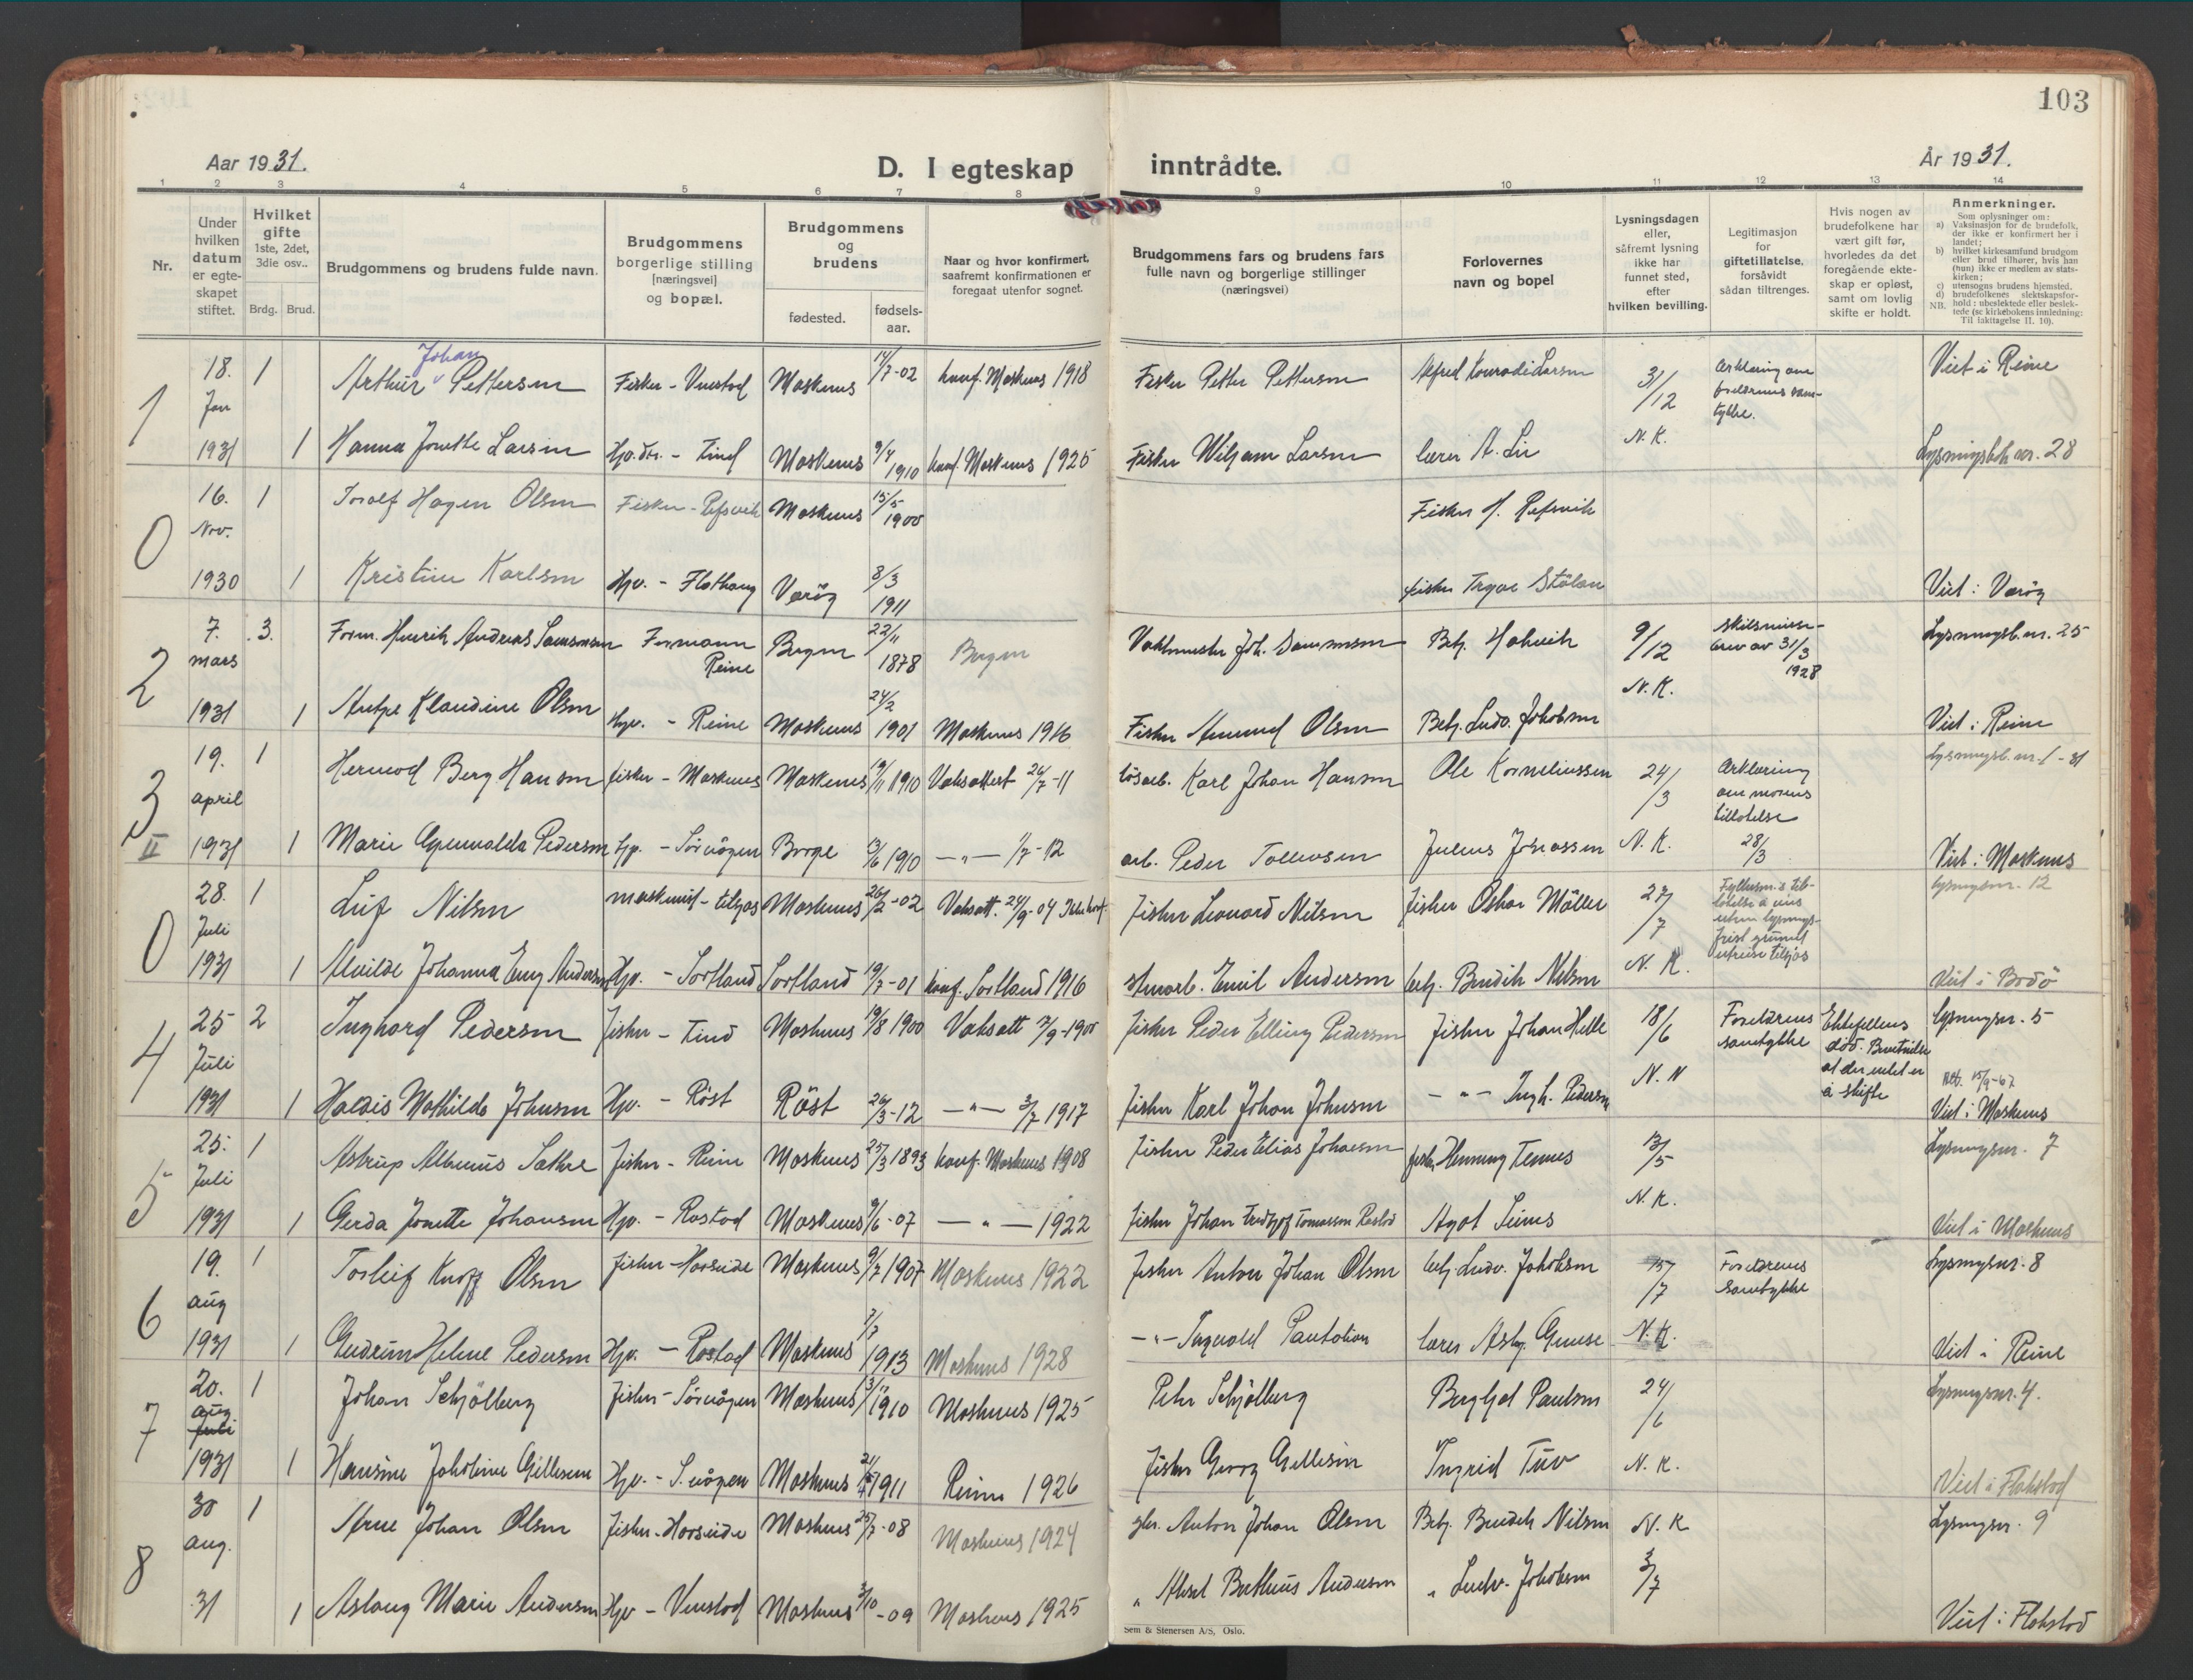 103
Aar 1931.
D. I egteskap inntrådte.
År 1931.
1 2 3 4 5 6 7 8 9 10 11 12 13 14
Nr.
Under hvilken datum er egteskapet stiftet.
Hvilket gifte 1ste, 2det, 3die osv..
Brdg. Brud.
Brudgommens og brudens fulde navn.
Brudgommens borgerlige stilling [næringsvei] og bopæl.
Brudgommens og brudens
fødested.
fødsels-aar.
Naar og hvor konfirmert, saafremt konfirmationen er foregaat utenfor sognet.
Brudgommens fars og brudens fars fulle navn og borgerlige stillinger (næringsvei)
Forlovernes navn og bopel
Lysningsdagen eller, såfremt lysning ikke har funnet sted, efter hvilken bevilling.
Legitimasjon for giftetillatelse, forsåvidt sådan tiltrenges.
Hvis nogen av brudefolkene har vært gift før, hvorledes da det foregående ekteskap er opløst, samt om lovlig skifte er holdt.
Anmerkninger.
Som oplysninger om:
a) Vaksinasjon for de brudefolk, der ikke er konfirmert her i landet;
b) hvilket kirkesamfund brudgom eller brud tilhører, hvis han (hun) ikke er medlem av statskirken;
c) utensogns brudens hjemsted.
d) brudefolkenes slektskapsforhold: ubeslektede eller beslektede (se kirkebokens innledning:
NB. Til iakttagelse II. 10).
1 18. Jan 1931 1 Arthur Johan Pettersen Fisker - Vinstad Moskenes 14/7-02 konf. Moskenes 1918 Fisker Petter Pettersen Alfred Konradi Larsen 3/12 N. K. Erklæring om foreldrenes samtykke. Viet i Reine
1 Hanna Jonette Larsen Hjv.dtr. - Tind Moskenes 9/4 1910 konf. Moskenes 1925 Fisker Wiljam Larsen lærer A. Lie Lysningsbok nr. 28
0 16. Nov. 1930 1 Toralf Hagen Olsen Fisker - Refsvik Moskenes 15/5 1900 Fisker H. Refsvik
1 Kristine Karlsen Hjv. - Flothaug Værøy 8/3 1911 fisker Trygve Stølan Viet i Værøy
2 7. mars 1931 3. Form. Henrik Andreas Samsonsen Formann Reine Bergen 22/11 1878 Bergen Vaktmester Joh. Samsonsen Betj. Hakvik 9/12 N. K. Skilsmisse-brev av 31/3 1928 Lysningsb. nr. 25
1 Antze Klaudine Olsen Hjv. - Reine Moskenes 24/2 1901 Moskenes 1916 Fisker Amund Olsen Betj. Ludv. Jakobsen Viet i Reine
3 II 19. april 1931 1 Hermod Berg Hansen fisker - Moskenes Moskenes 19/11 1910 Vaksattest 26/7-11 løsarb. Karl Johan Hansen Ole Korneliussen 24/3 N. K. Erklæring om morens tillatelse 28/3 Lysningsb. nr. 1 - 31
1 Marie Pedersen Hjv. - Sørvågen Borge 13/6 1910 — " — 1/7-12 arb. Peder Tollevsen Julius Jonassen Viet i Moskenes
0 28. Juli 1931 1 Leif Nilsen maskinist - tilsjøs Moskenes 26/2-02 Vaksatt. 24/9-04 Ikke konf. fisker Leonard Nilsen fisker Oskar Møller 27/7 N. K. lysningsnr. 12
1 Alvilde Johanna Emy Andersen Hjv. - Sortland Sortland 19/7-01 konf. Sortland 1916 Emil Andersen betj. Bendik Nilsen Viet i Bodø
4 25 Juli 1931 2 Inghard Pedersen fisker - Tind Moskenes 19/8 1900 Vaksatt 7/9-1900 fisker Peder Elling Pedersen fisker Johan Helle 18/6 N. N Foreldrenes samtykke Ektefellens død. Bevitnelse at der intet er å skifte lysningsnr. 5
1 Haldis Mathilde Johnsen Hjv. - Røst Røst 26/3-12 — " — 3/7 1917 fisker Karl Johan Johnsen — " — Ingh. Pedersen 15/9-67 Viet i Moskenes
5 25. Juli 1931 1 Astrup Albinus Sathre fisker - Reine Moskenes 25/3 1893 konf. Moskenes 1908 fisker Peder Elias Johansen fisker Henning Tennes 13/5 N. K. Lysningsnr. 7
1 Gerda Jonette Johansen Hjv. - Rostad Moskenes 9/6-07 — " — 1922 fisker Johan Fridtjof Tomassen Rostad Agot Seines Viet i Moskenes
6 19. aug 1931 1 Torleif Knoff Olsen fisker - Horseide Moskenes 9/7 1907 Moskenes 1922 fisker Anton Johan Olsen betj. Ludv. Jakobsen 15/7 N. K. Foreldrenes samtykke Lysningsnr. 8
1 Gudrun Helene Pedersen Hjv. - Rostad Moskenes 7/7 1913 Moskenes 1928 — " — Ingvald Pantation lærer Asbj. Gunse Viet i Reine
7 20. aug Juli 1931 1 Johan Schjølberg fisker - Sørvågen Moskenes 1910 Moskenes 1925 Peter Schjølberg Bergljot Paulsen 24/6 N. K. Lysningsnr. 4.
1 Hansine Jakobine Gillesen Hjv. - S. vågen Moskenes 1911 Reine 1926 fisker Georg Gillesen Ingrid Tuv Viet i Flakstad
8 30 aug. 31 1 Arne Johan Olsen fisker - Horseide Moskenes 25/7-08 Moskenes 1924 Anton Johan Olsen Betj. Bendik Nilsen N. K 3/7 Lysningsnr. 9
1 Aslaug Marie Andersen Hjv - Vinstad Moskenes 3/10-09 Moskenes 1925 " Aksel Berthius Andersen " Ludv. Jakobsen Viet i Flakstad
Sem & Stenersen A/S, Oslo.